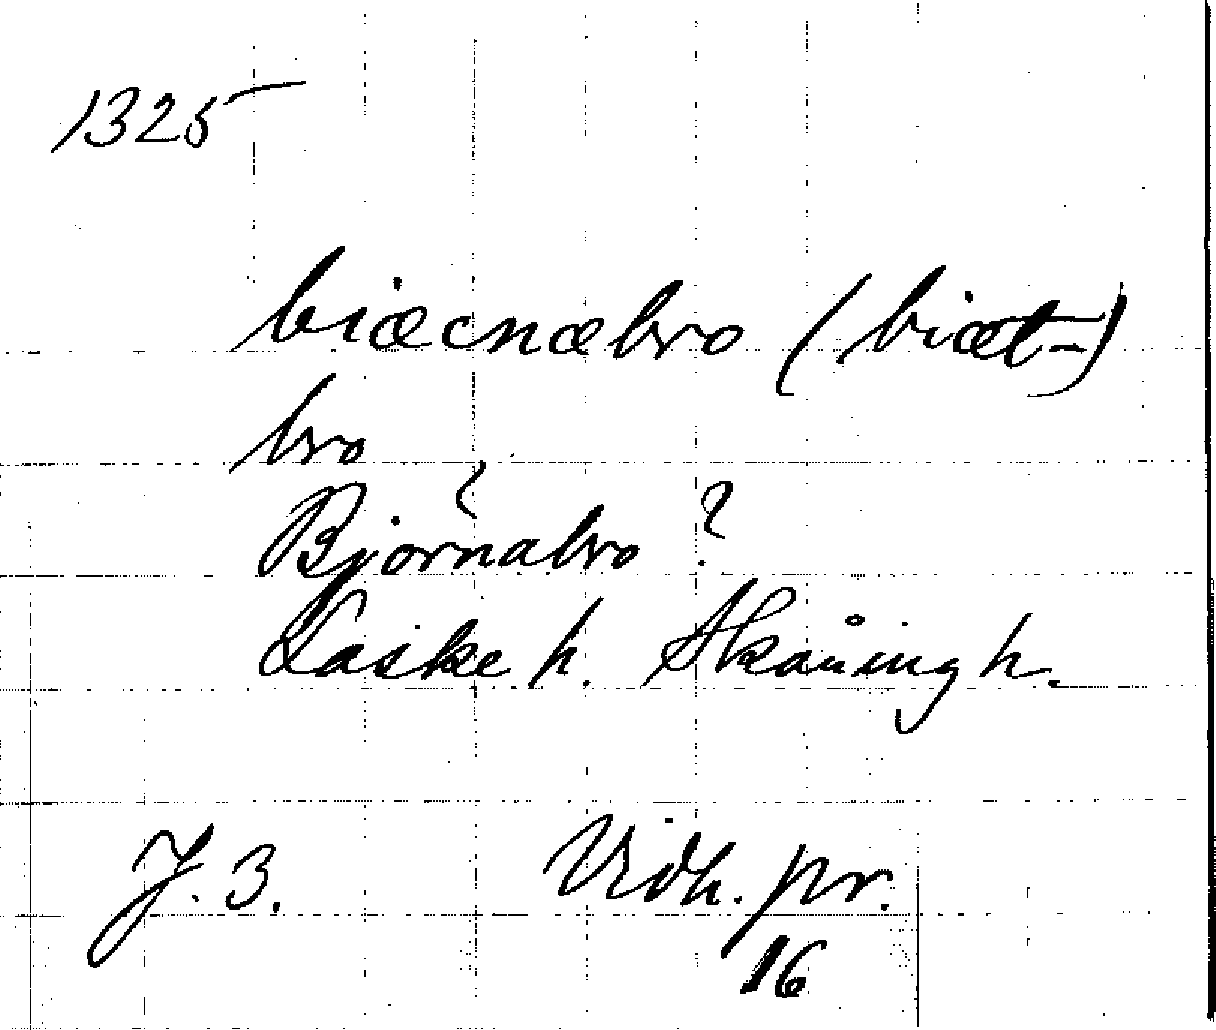 1325
biæcnæbro (biæt-)
bro
Björnabro ?
Laske h. Skåning h.
J. 3. Vidh. pr.
16